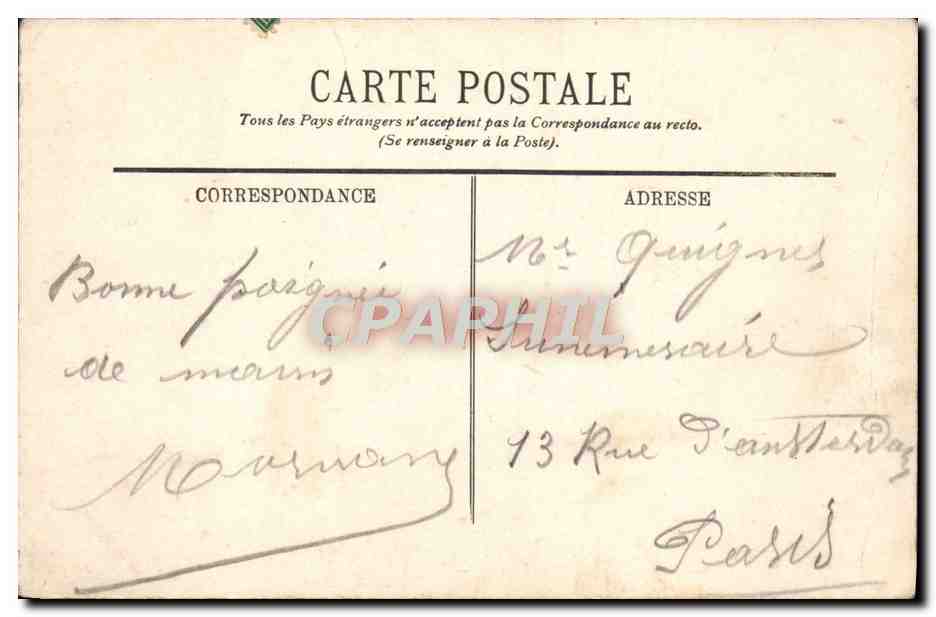 CARTE POSTALE
Tous les Pays étrangers n'acceptent pas la Correspondance au recto.
(Se renseigner à la Poste).
CORRESPONDANCE
ADRESSE
Bonne poignée
de mains
Mr Quignes
13 Rue D'amsterdam
Paris
CPAPHIL